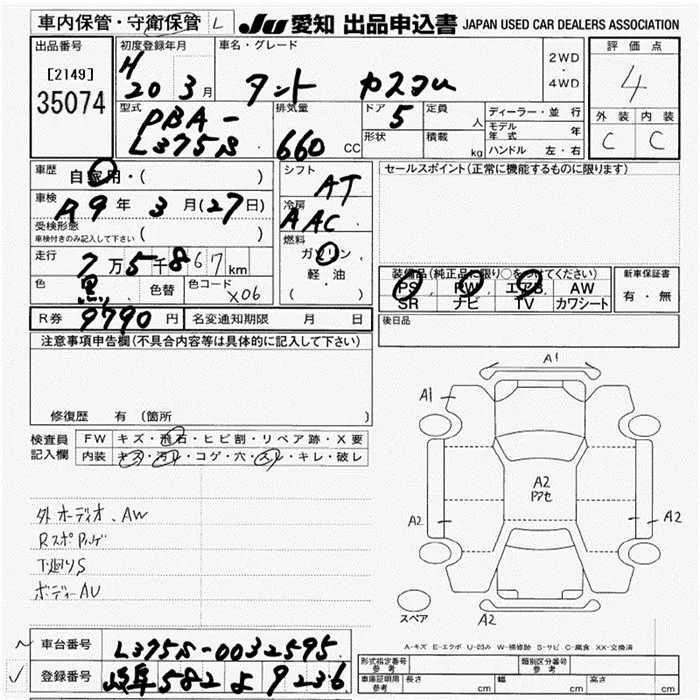 車内保管・守衛保管 L
JU 愛知 出品申込書 JAPAN USED CAR DEALERS ASSOCIATION
出品番号
[2149]
35074
初度登録年月
H 20年 3月
車名・グレード
タント カスタム
2WD
・
4WD
評価点
4
外装 内装
C C
型式
DBA-
L375S
排気量
660 CC
ドア 5
形状
定員 人
積載 kg
ディーラー・並行
モデル年式 年
ハンドル 左・右
車歴
自家用・( )
車検
R9年 3月(27日)
受検形態
車検付きのみ記入して下さい ( )
走行
7万5千867km
色 黒 色替 色コード X06
シフト
AT
冷房
AAC
燃料
ガソリン
軽・油
( )
セールスポイント(正常に機能するものに限ります)
装備品(純正品に限り○をつけてください)
PS PW エアB AW
SR ナビ TV カワシート
新車保証書
有・無
R券 9790円 名変通知期限 月 日
後日品
注意事項申告欄(不具合内容等は具体的に記入して下さい)
修復歴 有(箇所 )
検査員
記入欄
FW キズ・飛石・ヒビ割・リペア跡・X要
内装 キズ・汚レ・コゲ・穴・スレ・キレ・破レ
外オーディオ、AW
下廻りS
ボディーAU
A1
A1
A2
アクセ
A2
A2
A2
スペア
A-キズ E-エクボ U-凹み W-補修跡 S-サビ C-腐食 XX-交換済
車台番号 L375S-0032595
登録番号 岐阜 582 よ 9236
型式指定番号
参考
類別区分番号
参考
車庫証明用
参考
長さ cm 幅 cm 高さ cm